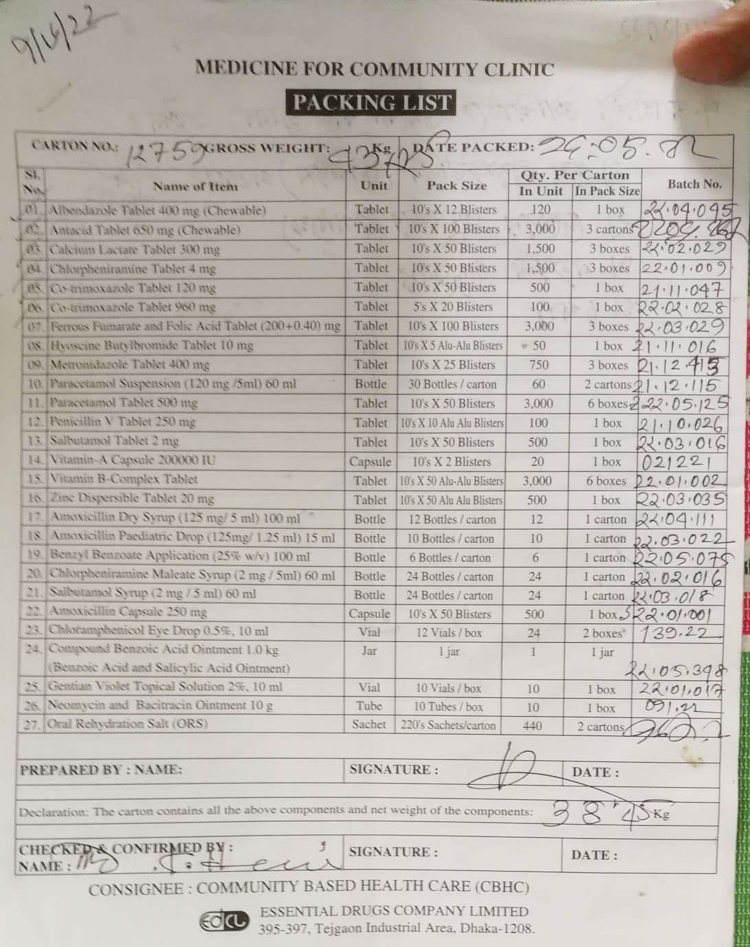 9/6/22
MEDICINE FOR COMMUNITY CLINIC
PACKING LIST
CARTON NO.: 12759 GROSS WEIGHT: Kg. DATE PACKED:
Sl. No. Name of Item Unit Pack Size Qty. Per Carton Batch No.
In Unit In Pack Size
01. Albendazole Tablet 400 mg (Chewable) Tablet 10's X 12 Blisters 120 1 box 22.04.095
02. Antacid Tablet 650 mg (Chewable) Tablet 10's X 100 Blisters 3,000 3 cartons
03. Calcium Lactate Tablet 300 mg Tablet 10's X 50 Blisters 1,500 3 boxes 22.02.029
04. Chlorpheniramine Tablet 4 mg Tablet 10's X 50 Blisters 1,500 3 boxes 22.01.009
05. Co-trimoxazole Tablet 120 mg Tablet 10's X 50 Blisters 500 1 box 21.11.047
06. Co-trimoxazole Tablet 960 mg Tablet 5's X 20 Blisters 100 1 box 22.02.028
07. Ferrous Fumarate and Folic Acid Tablet (200+0.40) mg Tablet 10's X 100 Blisters 3,000 3 boxes 22.03.029
08. Hyoscine Butylbromide Tablet 10 mg Tablet 10's X 5 Alu-Alu Blisters 50 1 box 21.11.016
09. Metronidazole Tablet 400 mg Tablet 10's X 25 Blisters 750 3 boxes
10. Paracetamol Suspension (120 mg /5ml) 60 ml Bottle 30 Bottles / carton 60 2 cartons 21.12.115
11. Paracetamol Tablet 500 mg Tablet 10's X 50 Blisters 3,000 6 boxes 22.05.125
12. Penicillin V Tablet 250 mg Tablet 10's X 10 Alu Alu Blisters 100 1 box 21.10.026
13. Salbutamol Tablet 2 mg Tablet 10's X 50 Blisters 500 1 box 22.03.016
14. Vitamin-A Capsule 200000 IU Capsule 10's X 2 Blisters 20 1 box 021221
15. Vitamin B-Complex Tablet Tablet 10's X 50 Alu-Alu Blisters 3,000 6 boxes 22.01.002
16. Zinc Dispersible Tablet 20 mg Tablet 10's X 50 Alu Alu Blisters 500 1 box 22.03.035
17. Amoxicillin Dry Syrup (125 mg/ 5 ml) 100 ml Bottle 12 Bottles / carton 12 1 carton 22.04.111
18. Amoxicillin Paediatric Drop (125mg/ 1.25 ml) 15 ml Bottle 10 Bottles / carton 10 1 carton 22.03.022
19. Benzyl Benzoate Application (25% w/v) 100 ml Bottle 6 Bottles / carton 6 1 carton 22.05.075
20. Chlorpheniramine Maleate Syrup (2 mg / 5ml) 60 ml Bottle 24 Bottles / carton 24 1 carton 22.02.016
21. Salbutamol Syrup (2 mg / 5 ml) 60 ml Bottle 24 Bottles / carton 24 1 carton 22.03.018
22. Amoxicillin Capsule 250 mg Capsule 10's X 50 Blisters 500 1 box 22.01.001
23. Chloramphenicol Eye Drop 0.5%, 10 ml Vial 12 Vials / box 24 2 boxes 139.22
24. Compound Benzoic Acid Ointment 1.0 kg Jar 1 jar 1 1 jar
(Benzoic Acid and Salicylic Acid Ointment) 22.05.398
25. Gentian Violet Topical Solution 2%, 10 ml Vial 10 Vials / box 10 1 box 22.01.017
26. Neomycin and Bacitracin Ointment 10 g Tube 10 Tubes / box 10 1 box 091.22
27. Oral Rehydration Salt (ORS) Sachet 220's Sachets/carton 440 2 cartons
PREPARED BY : NAME: SIGNATURE : DATE :
Declaration: The carton contains all the above components and net weight of the components: 38.45 Kg
CHECKED & CONFIRMED BY :
NAME : SIGNATURE : DATE :
CONSIGNEE : COMMUNITY BASED HEALTH CARE (CBHC)
EDCL ESSENTIAL DRUGS COMPANY LIMITED
395-397, Tejgaon Industrial Area, Dhaka-1208.